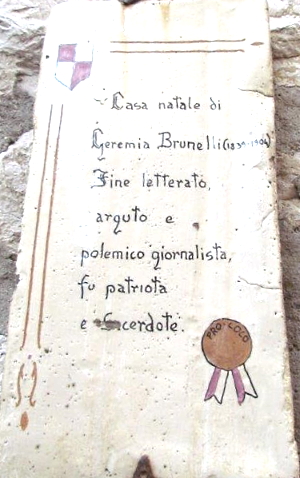 Casa natale di
Geremia Brunelli
Fine letterato,
arguto e
polemico giornalista,
fu patriota
e Sacerdote.
PRO-LOCO